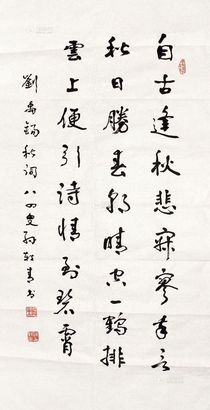 自古逢秋悲寂寥我言
秋日勝春朝晴空一鶴排
雲上便引詩情到碧霄
劉禹錫秋詞八四叟孫軼青書